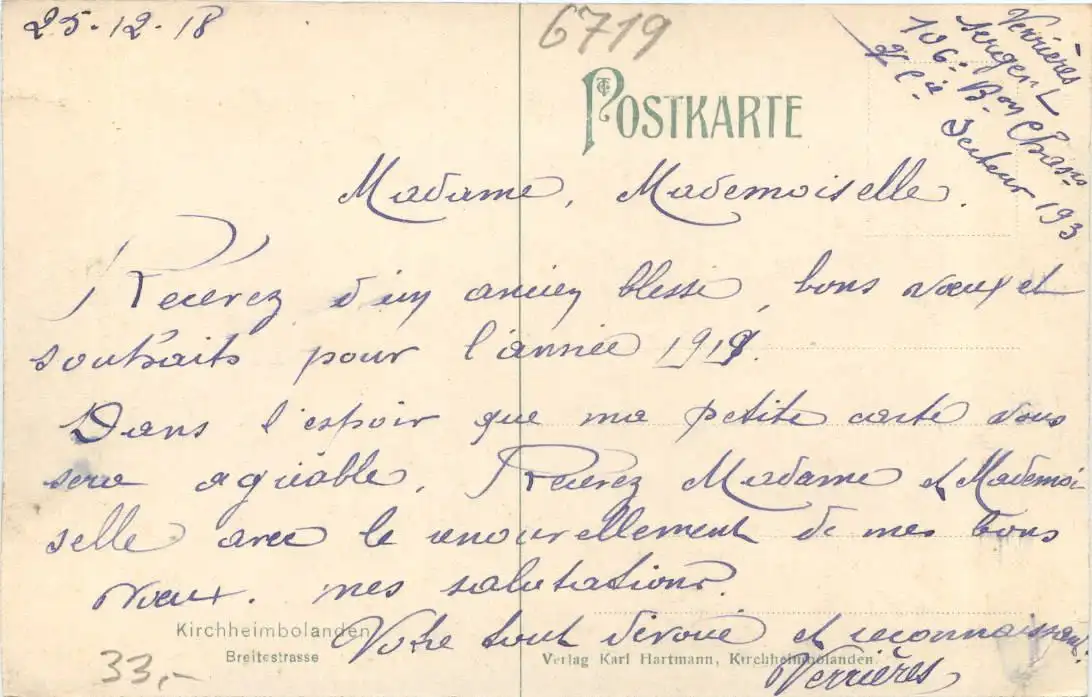 25-12-18
6719
Verrières
sergent
106e Bon Chass
2e Cie
Secteur 193
POSTKARTE
Madame, Mademoiselle.
Recevez d'un ancien blessé, bons vœux et
souhaits pour l'année 1919.
Dans l'espoir que ma petite carte vous
sera agréable, Recevez Madame et Mademoi
selle avec le renouvellement de mes bons
vœux. mes salutations.
Votre tout dévoué et reconnaissant.
Verrières
Kirchheimbolanden
Breitestrasse
Verlag Karl Hartmann, Kirchheimbolanden.
33,-